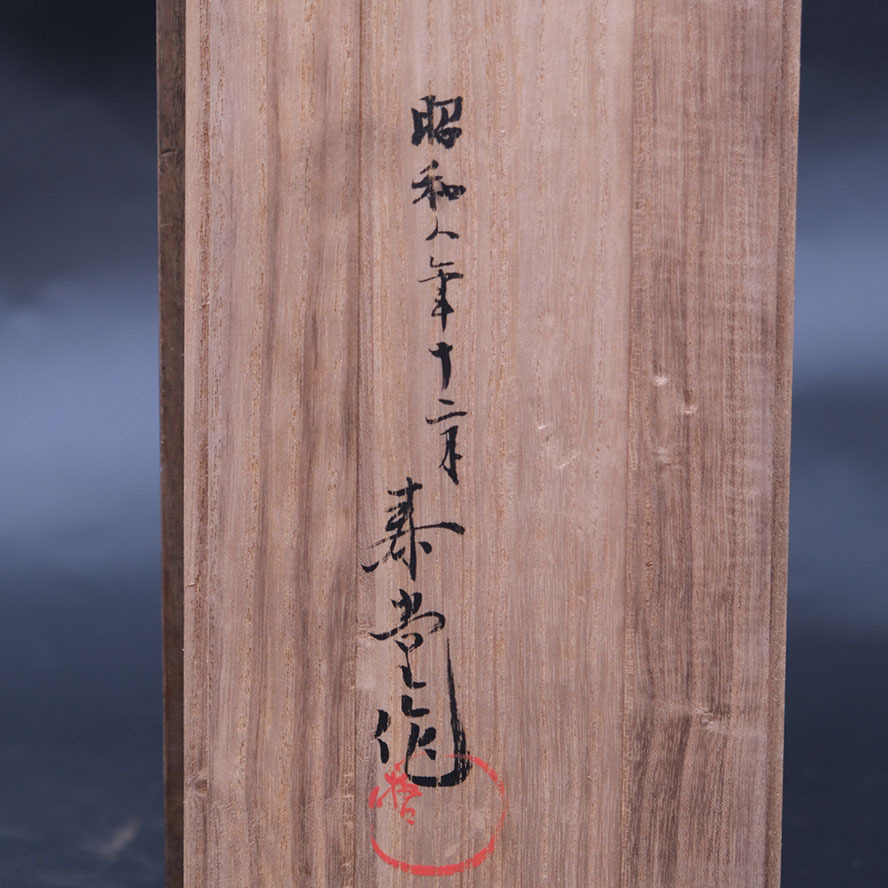 昭和八年十二月 泰堂作